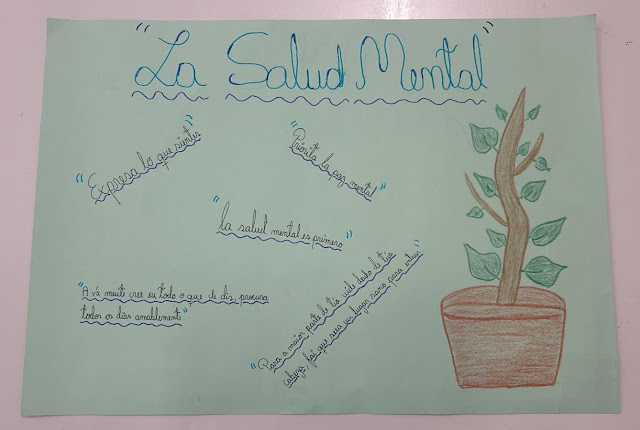 "La Salud Mental"
"Expresa lo que sientes"
"Priorita la paz mental"
"la salud mental es primero"
"A vá mente cree en todo o que lle dis, procura
todos os días amablemente"
"Pasa a maior parte do teu vida dentro de túa
cabeza, fai que sexa un lugar sano para